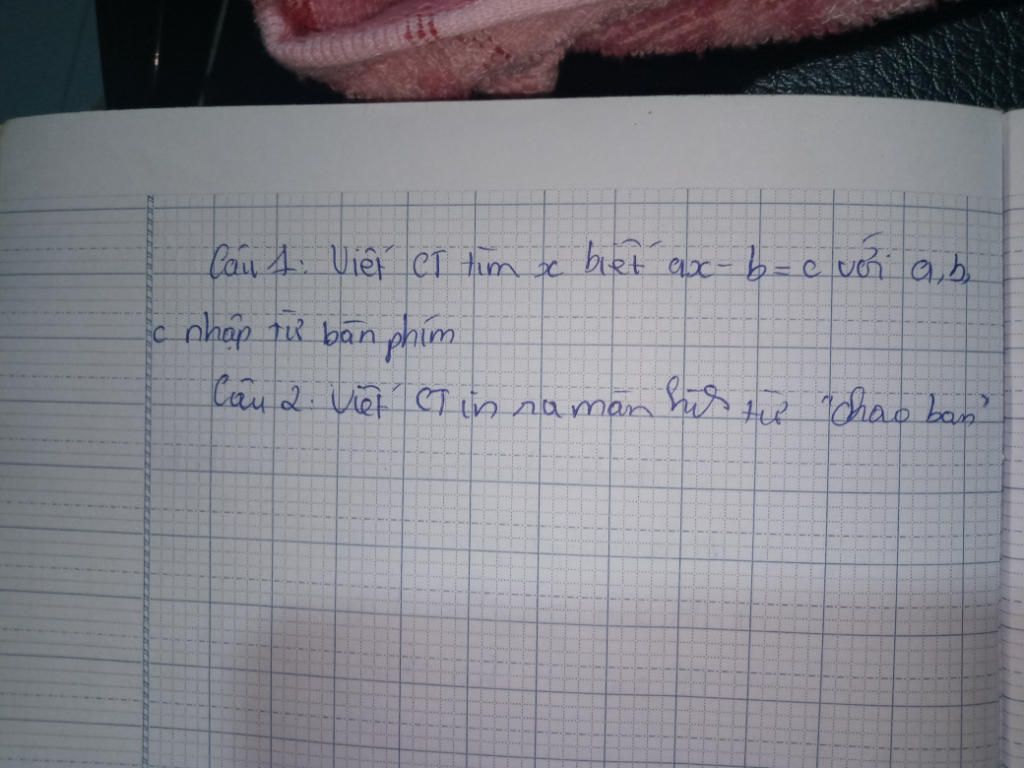 Câu 1: Viết CT tìm x biết ax - b = c với a, b,
c nhập từ bàn phím
Câu 2. Viết CT in ra màn hình từ "chao ban"